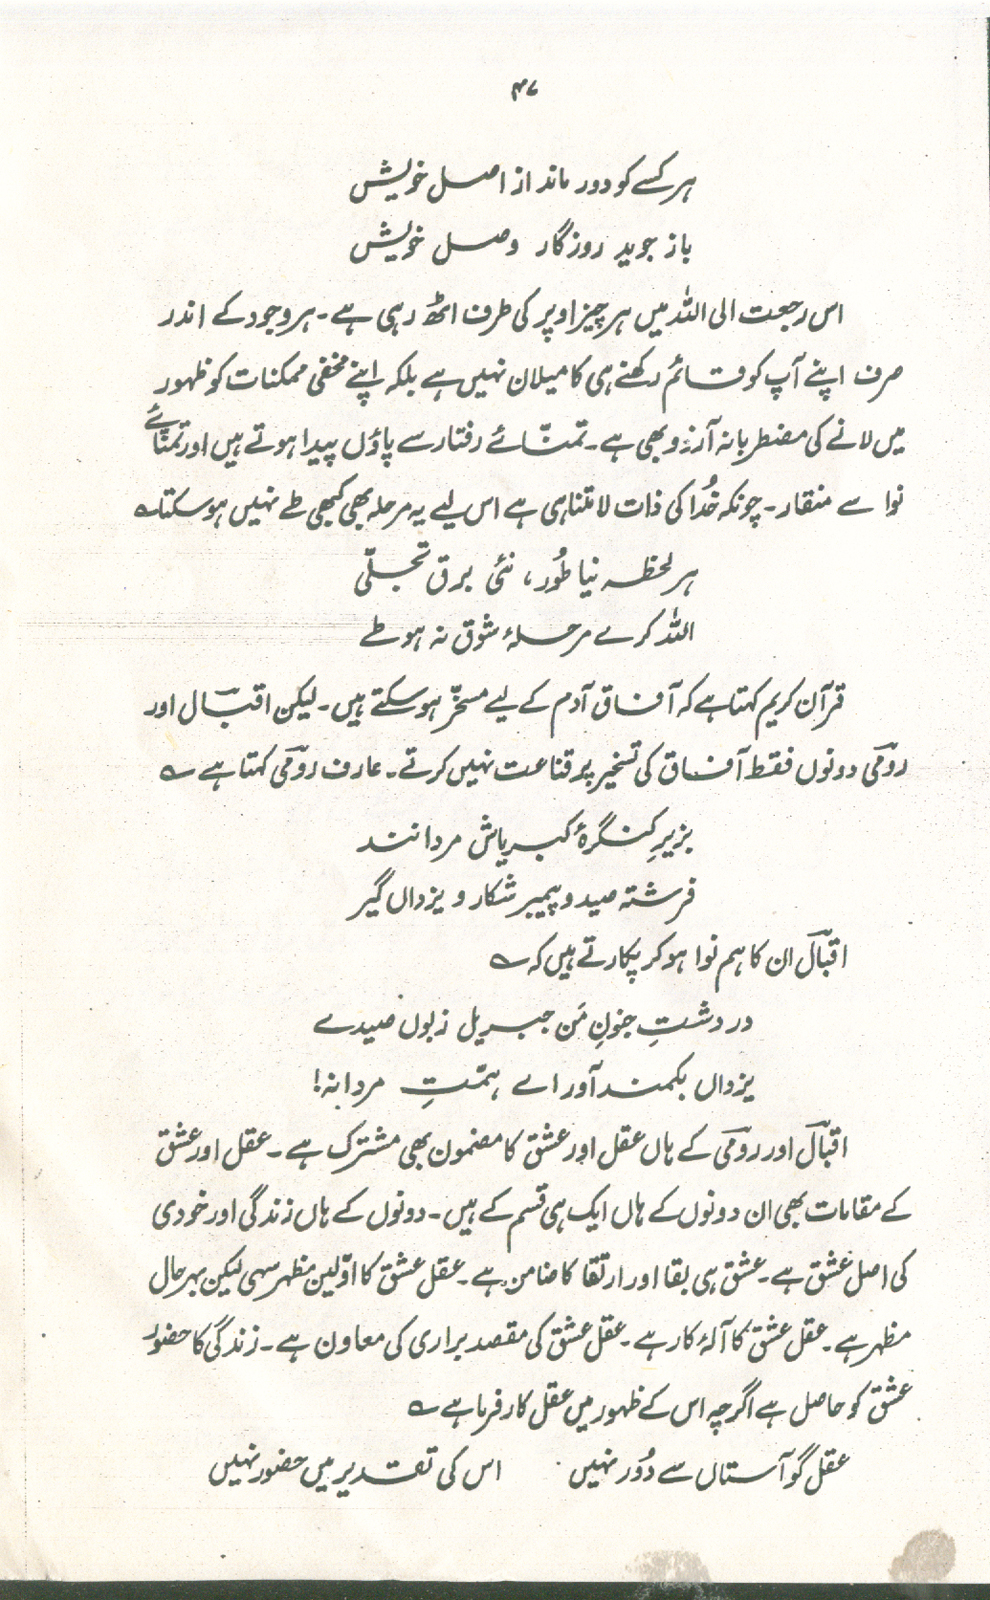 ۴۷
ہر کسے کو دور ماند از اصل خویش
باز جوید روزگار وصل خویش
اس رجعت الی اللہ میں ہر چیز اوپر کی طرف اٹھ رہی ہے۔ ہر وجود کے اندر
صرف اپنے آپ کو قائم رکھنے ہی کا میلان نہیں ہے بلکہ اپنے مخفی ممکنات کو ظہور
میں لانے کی مضطربانہ آرزو بھی ہے۔ تمنّائے رفتار سے پاؤں پیدا ہوتے ہیں اور تمنّائے
نوا سے منقار۔ چونکہ خُدا کی ذات لامتناہی ہے اس لیے یہ مرحلہ بھی کبھی طے نہیں ہو سکتا ؎
ہر لحظہ نیا طُور، نئی برق تجلّی
اللہ کرے مرحلۂ شوق نہ ہو طے
قرآن کریم کہتا ہے کہ آفاق آدم کے لیے مسخّر ہو سکتے ہیں۔ لیکن اقبالؔ اور
رومیؔ دونوں فقط آفاق کی تسخیر پر قناعت نہیں کرتے۔ عارف رومیؔ کہتا ہے ؎
بزیرِ کنگرۂ کبریاش مردانند
فرشتہ صید و پیمبر شکار و یزداں گیر
اقبالؔ ان کا ہم نوا ہو کر پکارتے ہیں کہ ؎
در دشتِ جنونِ مَن جبریل زبوں صیدے
یزداں بکمند آور اے ہمّتِ مردانہ!
اقبالؔ اور رومیؔ کے ہاں عقل اور عشق کا مضمون بھی مشترک ہے۔ عقل اور عشق
کے مقامات بھی ان دونوں کے ہاں ایک ہی قسم کے ہیں۔ دونوں کے ہاں زندگی اور خودی
کی اصل عشق ہے۔ عشق ہی بقا اور ارتقا کا ضامن ہے۔ عقل عشق کا اوّلین مظہر سہی لیکن بہرحال
مظہر ہے۔ عقل عشق کا آلۂ کار ہے۔ عقل عشق کی مقصد براری کی معاون ہے۔ زندگی کا حضور
عشق کو حاصل ہے اگرچہ اس کے ظہور میں عقل کارفرما ہے ؎
عقل گو آستاں سے دُور نہیں اس کی تقدیر میں حضور نہیں